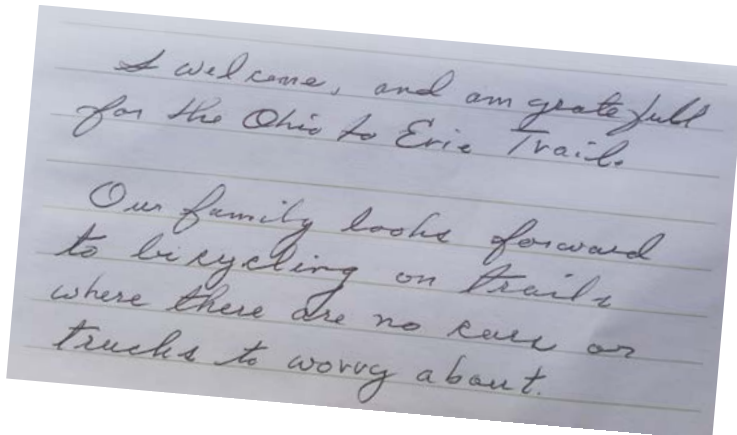 I welcome, and am gratefull
for the Ohio to Erie Trail.
Our family looks forward
to bicycling on trails
where there are no cars or
trucks to worry about.